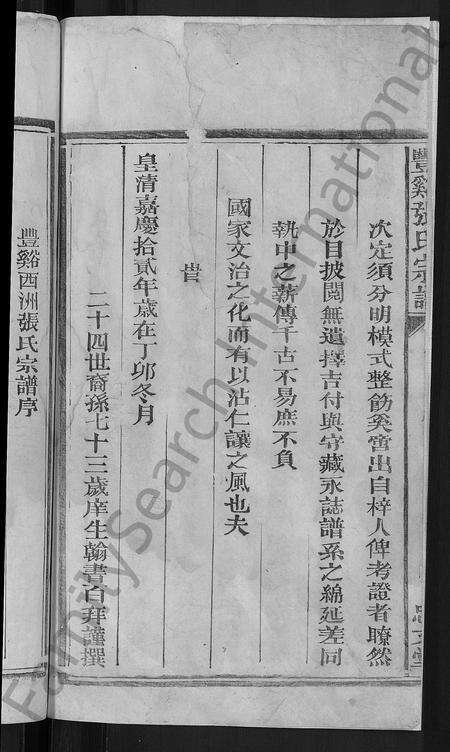 豐谿張氏宗譜
次定須分明模式整飭奚啻出自梓人俾考證者瞭然
於目披閱無遺擇吉付與字藏永誌譜系之綿延差同
執中之薪傳千古不易庶不負
國家文治之化而有以沾仁讓之風也夫
旹
皇清嘉慶拾貳年歲在丁卯冬月
二十四世裔孫七十三歲庠生翰書百拜謹撰
豐谿西洲張氏宗譜序
FamilySearch International